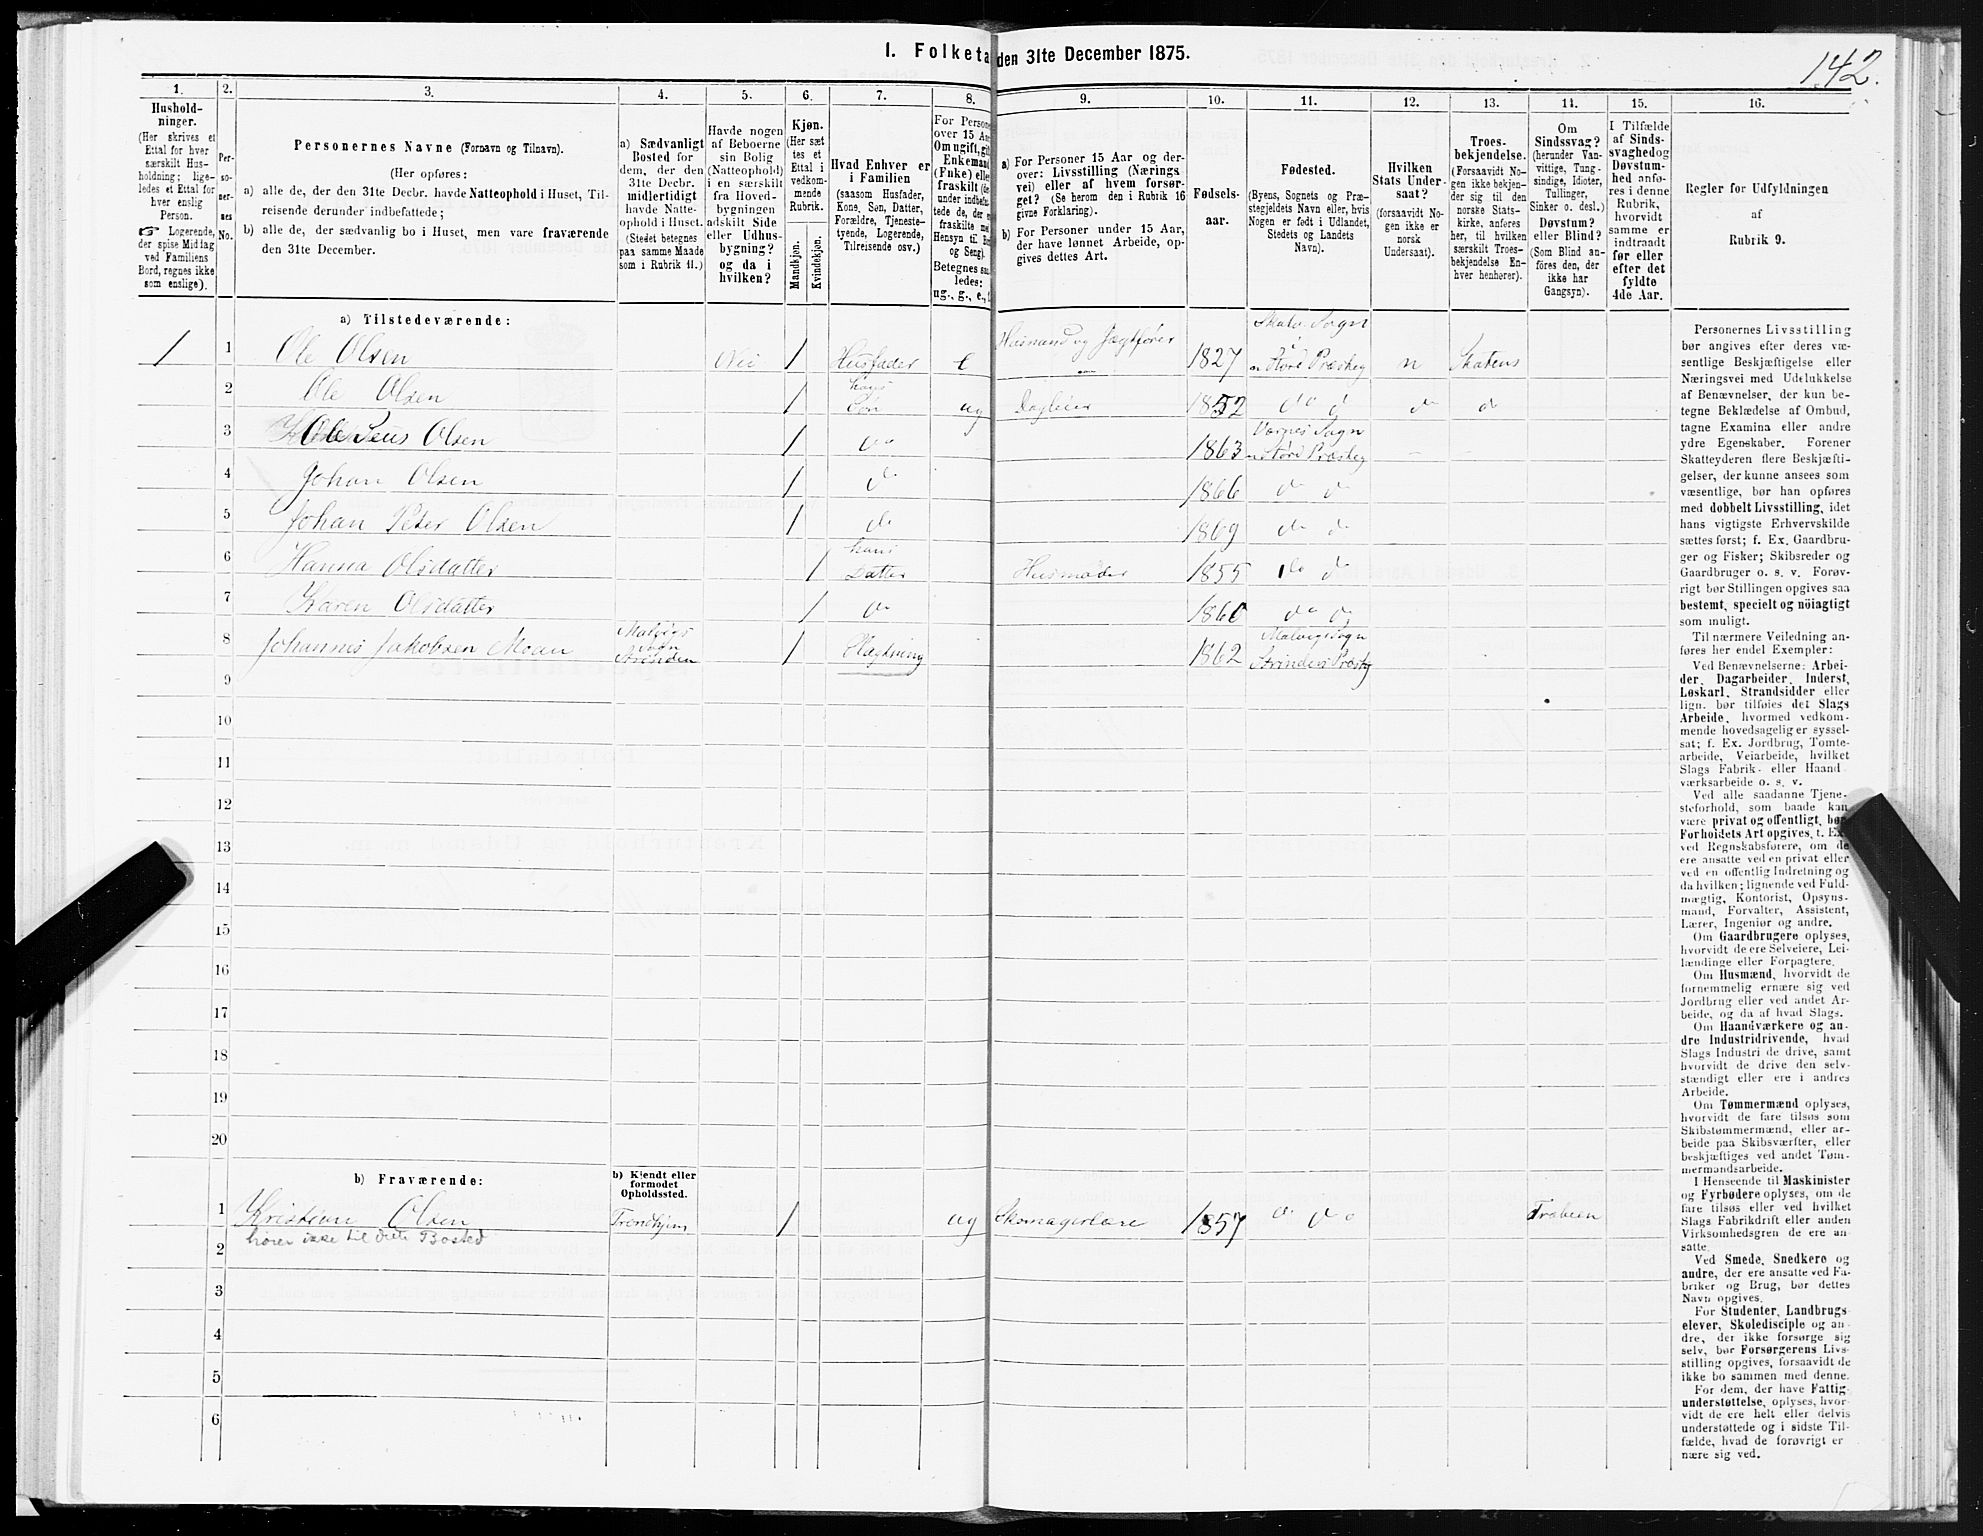 I. Folketa
den 31te December 1875.
142.
1.
2.
3.
4.
5.
6.
7.
8.
9.
10.
11.
12.
13.
14.
15.
16.
Hushold-
ninger.
(Her skrives et
Ettal for hver
særskilt Hus-
holdning; lige-
ledes et Ettal for
hver enslig
Person.
☞ Logerende,
der spise Middag
ved Familiens
Bord, regnes ikke
som enslige).
Per-
so-
ner-
nes
No.
Personernes Navne (Fornavn og Tilnavn).
(Her opføres:
a) alle de, der den 31te Decbr. havde Natteophold i Huset, Til-
reisende derunder indbefattede;
b) alle de, der sædvanlig bo i Huset, men vare fraværende
den 31te December.
a) Sædvanligt
Bosted for
dem, der den
31te Decbr.
midlertidigt
havde Natte-
ophold i Huset.
(Stedet betegnes
paa samme Maade
som i Rubrik 11.)
Havde nogen
af Beboerne
sin Bolig
(Natteophold)
i en særskilt
fra Hoved-
bygningen
adskilt Side
eller Udhus-
bygning?
og da i
hvilken?
Kjøn.
(Her sæt
tes et
Ettal i
vedkom-
mende
Rubrik.
Mandkjøn.
Kvindekjøn.
Hvad Enhver er
i Familien
(saasom Husfader,
Kone, Søn, Datter,
Forældre, Tjeneste-
tyende, Logerende,
Tilreisende osv.)
For Persone
over 15 Aa
Om ugift, gif
Enkemand
(Fuke) elle
fraskilt (de
under indbefat-
tede de, der e
fraskilte me
Hensyn til Bo
og Seng).
Betegnes saa
ledes:
ug., g., e.,
a) For Personer 15 Aar og der-
over: Livsstilling (Nærings
vei) eller af hvem forsør-
get? (Se herom den i Rubrik 16
givne Forklaring).
b) For Personer under 15 Aar,
der have lønnet Arbeide, op-
gives dettes Art.
Fødsels-
aar.
Fødested.
(Byens, Sognets og Præ-
stegjeldets Navn eller, hvis
Nogen er født i Udlandet,
Stedets og Landets
Navn).
Hvilken
Stats Under-
saat?
(forsaavidt No-
gen ikke er
norsk
Undersaat).
Troes-
bekjendelse.
(Forsaavidt No-
gen ikke bekjen-
der sig til den
norske Stats-
kirke, anføres
her, til hvilken
særskilt Troes-
bekjendelse En-
hver henhører).
Om
Sindssvag?
(herunder Van-
vittige, Tung-
sindige, Idioter,
Tullinger,
Sinker o. desl.)
Døvstum?
eller Blind?
(Som Blind an-
føres den, der
ikke har
Gangsyn).
I Tilfælde
af Sinds-
svaghed og
Døvstum-
hed anfø-
res i denne
Rubrik,
hvorvidt
samme er
indtraadt
før eller
efter det
fyldte
4de Aar.
Regler for Udfyldningen
af
Rubrik 9.
a) Tilstedeværende:
1 1 Ole Olsen Nei 1 Husfader e Husmand og Jagtfører 1827 Skatv. Sogn i n Stord Præsteg n Statens
2 Ole Olsen 1 hans Søn ug Dagleier 1852 do d do d
3 Ole Olsen 1 do 1863 Værnes Sogn n Stord Præsteg
4 Johan Olsen 1 do 1866 do do
5 Johan Peter Olsen 1 do 1869 do do
6 Hanna Olsdatter 1 hans Datter Husmoder 1855 do d
7 Karen Olsdatter 1 do 1860 do do
8 Johannes Jakobsen Moan Malvigs Sogn Strinden 1 Slægtning 1862 Malvigs Sogn Strindens Præsteg
9
10
11
12
13
14
15
16
17
18
19
20
b) Fraværende:
b) Kjendt eller
formodet
Opholdssted.
1 Kristian Olsen Trondhjem 1 ug Skomagerlære 1857 do do Træbeen
hører ikke til dette Bosted
2
3
4
5
6
Personernes Livsstilling
bør angives efter deres væ-
sentlige Beskjæftigelse eller
Næringsvei med Udelukkelse
af Benævnelser, der kun be-
tegne Beklædelse af Ombud,
tagne Examina eller andre
ydre Egenskaber. Forener
Skatteyderen flere Beskjæfti-
gelser, der kunne ansees som
væsentlige, bør han opføres
med dobbelt Livsstilling, idet
hans vigtigste Erhvervskilde
sættes først; f. Ex. Gaardbru-
ger og Fisker; Skibsreder og
Gaardbruger o. s. v. Forøv-
rigt bør Stillingen opgives saa
bestemt, specielt og nöiagtigt
som muligt.
Til nærmere Veiledning an-
føres her endel Exempler:
Ved Benævnelserne: Arbei-
der, Dagarbeider, Inderst,
Løskarl, Strandsidder eller
lign. bør tilføies det Slags
Arbeide, hvormed vedkom-
mende hovedsagelig er syssel-
sat; f. Ex. Jordbrug, Tomte-
arbeide, Veiarbeide, hvilket
Slags Fabrik- eller Haand-
værksarbeide o. s. v.
Ved alle saadanne Tjene-
steforhold, som baade kan
være privat og offentligt, bør
Forholdets Art opgives, t. Ex.
ved Regnskabsførere, om de
ere ansatte ved en privat eller
ved en offentlig Indretning og
da hvilken; lignende ved Fuld-
mægtig, Kontorist, Opsyns-
mand, Forvalter, Assistent,
Lærer, Ingeniør og andre.
Om Gaardbrugere oplyses,
hvorvidt de ere Selveiere, Lei-
lændinge eller Forpagtere.
Om Husmænd, hvorvidt de
fornemmelig ernære sig ved
Jordbrug eller ved andet Ar-
beide, og da af hvad Slags.
Om Haandværkere og an-
dre Industridrivende, hvad
Slags Industri de drive, samt
hvorvidt de drive den selv-
stændigt eller ere i andres
Arbeide.
Om Tømmermænd oplyses,
hvorvidt de fare tilsøs som
Skibstømmermænd, eller ar-
beide paa Skibsværfter, eller
beskjæftiges ved andet Tøm-
mermandsarbeide.
I Henseende til Maskinister
og Fyrbødere oplyses, om de
fare tilsøs eller ved hvilket
Slags Fabrikdrift eller anden
Virksomhedsgren de ere an-
satte.
Ved Smede, Snedkere og
andre, der ere ansatte ved Fa-
briker og Brug, bør dettes
Navn opgives.
For Studenter, Landbrugs-
elever, Skoledisciple og an-
dre, der ikke forsørge sig
selv, bør Forsørgerens Livs-
stilling opgives, forsaavidt de
ikke bo sammen med denne.
For dem, der have Fattig-
understøttelse, oplyses, hvor-
vidt de ere helt eller delvis
understøttede og i sidste Til-
fælde, hvad de forøvrigt er-
nære sig ved.